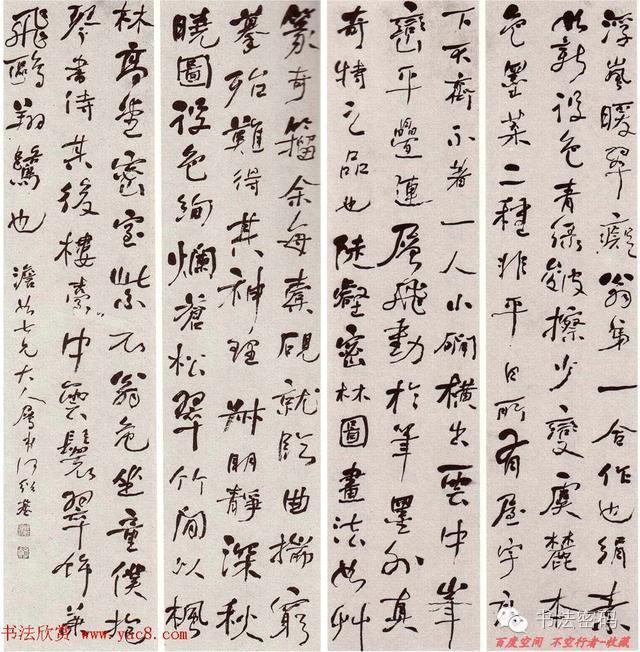 浮嵐暖翠癡翁第一合作也絹素
如新設色青綠皴擦少變虞麓木
色墨葉二種非平日所有屋宇
下不齊不著一人小磵橫出雲中峯
巒平疊連層飛動於筆墨外真
奇特之品也陡壑密林圖畫法如艸
篆奇籀余每龔硯就臨曲揣窮
摹殆難得其神理 明靜深秋
曉圖設色絢爛蒼松翠竹間以楓
林高堂密室紫衣翁危坐童僕抱
琴書侍其後樓 中雲鬟翠飾
飛鴻翔鸞也 澹 七兄大人屬 何紹基
书法欣赏 www.yac8.com
书法密码
百度空间 不空行者-收藏